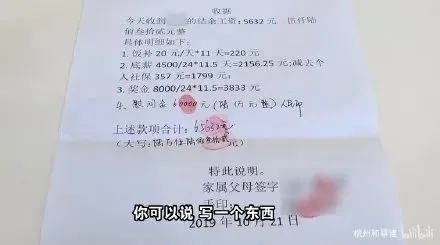 收据
今天收到 的结金工资：5632 元 伍仟陆
佰叁拾贰元整
具体明细如下：
1. 饭补 20 元/天*11 天=220 元
2. 底薪 4500/24*11.5 天=2156.25 元;减去个
人社保 357 元=1799 元；
3. 奖金 8000/24*11.5=3833 元
4. 慰问金 60000 元（陆万元整）人民币
上述款项合计：65632元
（大写：陆万伍仟陆佰叁拾贰元）
特此说明。
家属父母签字
手印：
2019 年 10 月 21 日
你可以说 写一个东西
杭州和事佬
bilibili